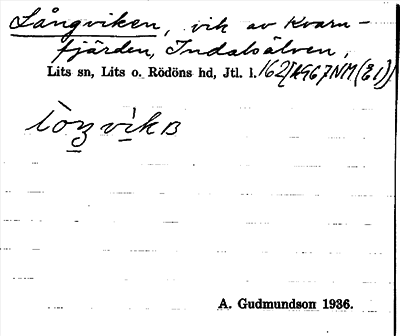 Långviken, vik av Kvarn-
fjärden, Indalsälven,
Lits sn, Lits o. Rödöns hd, Jtl. l.
A. Gudmundson 1936.